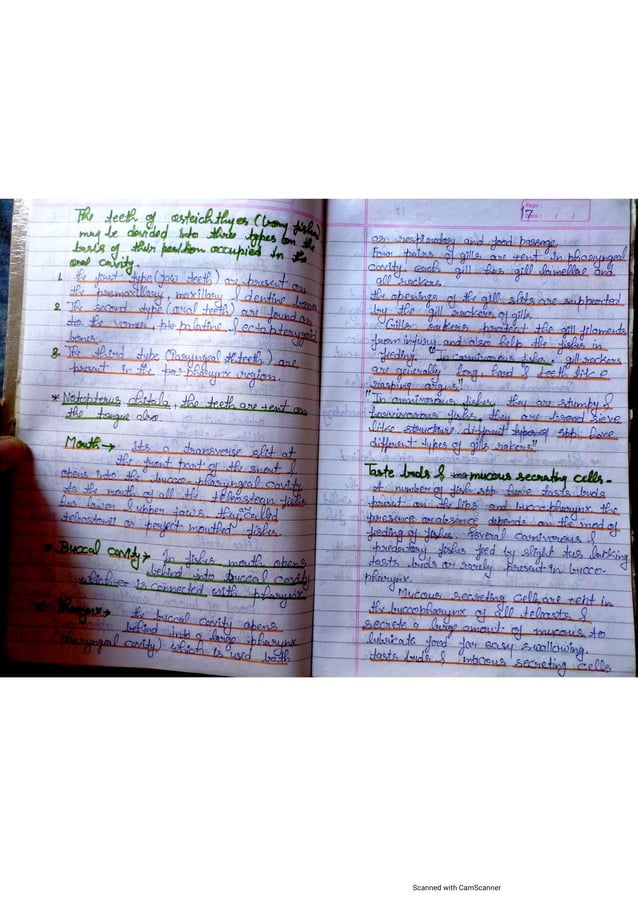 The teeth of osteichthyes (bony fishes)
may be devided into three types on the
basis of their position occupied in the
oral cavity.
1. The first type (jaw teeth) are present on
the premaxillary, maxillary & dentine bones
2. The second type (oral teeth) are found on
to the vomer, palatine & ectopterygoid
bones.
3. The third type (Pharyngal teeth) are
present in the pharynx region.
* Notopterus chitala, the teeth are sent on
the tongue also.
Mouth → Its a transverse slit at
the front part of the snout &
opens into the bucco-pharyngeal cavity
As the mouth of all the Teleostean fishes
has lower & upper jaws they called
teleostomi or perfect mouthed fishes.
* Buccal cavity → In fishes mouth opens
behind into buccal cavity
which is connected with pharynx
* Pharynx → the buccal cavity opens
behind into a large pharynx
(pharyngal cavity) which is used both
Page :
17
as respiratory and food passage.
Four pairs of gills are sent in pharyngeal
cavity, each gill has gill lamellae and
gill rackers.
the openings of the gill slits are supported
by the gill rackers of gills.
Gills rakers protect the gill filaments
from injury and also help the fishes in
feeding. "In carnivorous fishes, gill rackers
are generally long hard & teeth like
rasping organs"
"In omnivorous fishes they are stumpy &
herbivorous fishes they are broad sieve
like structure. different types of spp. have
different types of gills rakers"
Taste buds & mucous secreting cells -
A number of fish spp have tasts buds
present on the lips and buccopharynx the
presence or absence depends on the mod of
feeding of fishes. Several carnivorous &
predatory fishes feed by slight tus lacking
tasts buds or rarely present in bucco-
pharynx.
Mucous secreting Cells are sent in
the buccopharynx of all teleosts &
secrete a large amount of mucous to
lubricate food for easy swallowing.
tasts buds & mucous secreting cells
Scanned with CamScanner